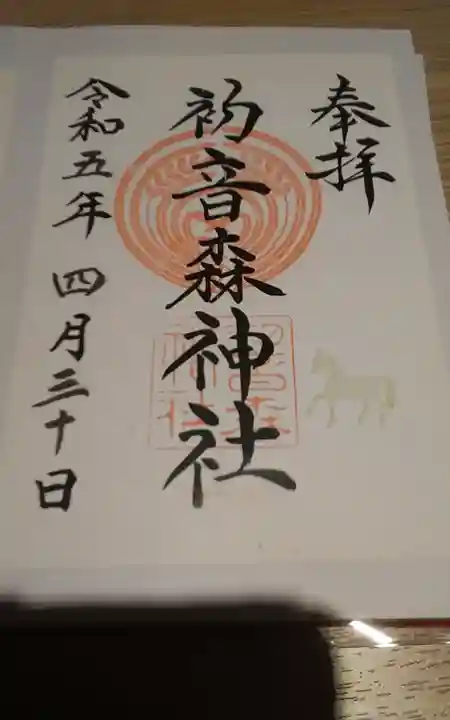 奉拝
初音森神社
令和五年 四月三十日